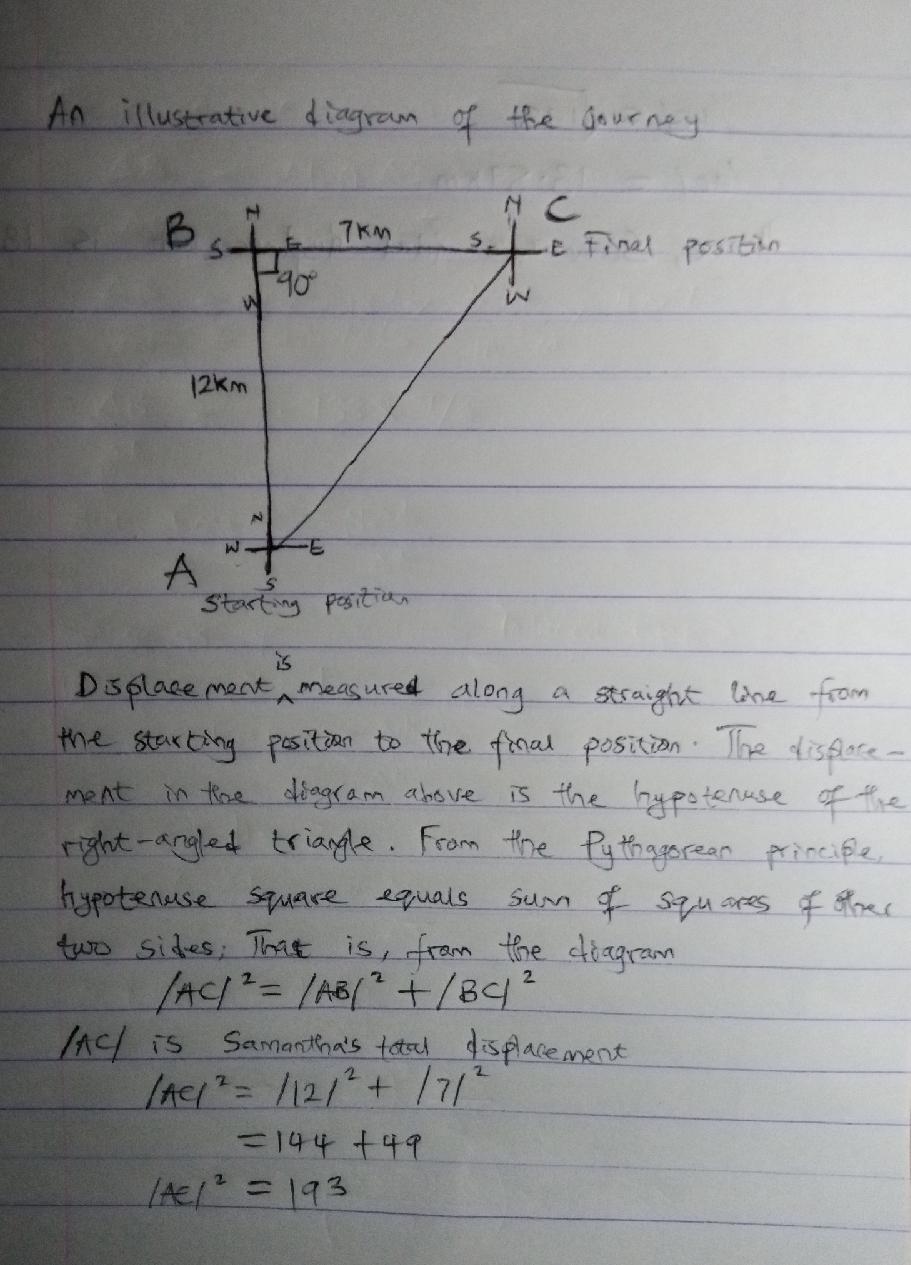 An illustrative diagram of the Journey
N C
B N
S E 7km S E Final position
90°
W W
12km
N
W E
A S
Starting position
is
Displacement ^ measured along a straight line from
the starting position to the final position. The displace-
ment in the diagram above is the hypotenuse of the
right-angled triangle. From the Pythagorean principle,
hypotenuse square equals sum of squares of other
two sides; That is, from the diagram
/AC/² = /AB/² + /BC/²
/AC/ is Samantha's total displacement
/AC/² = /12/² + /7/²
= 144 + 49
/AC/² = 193